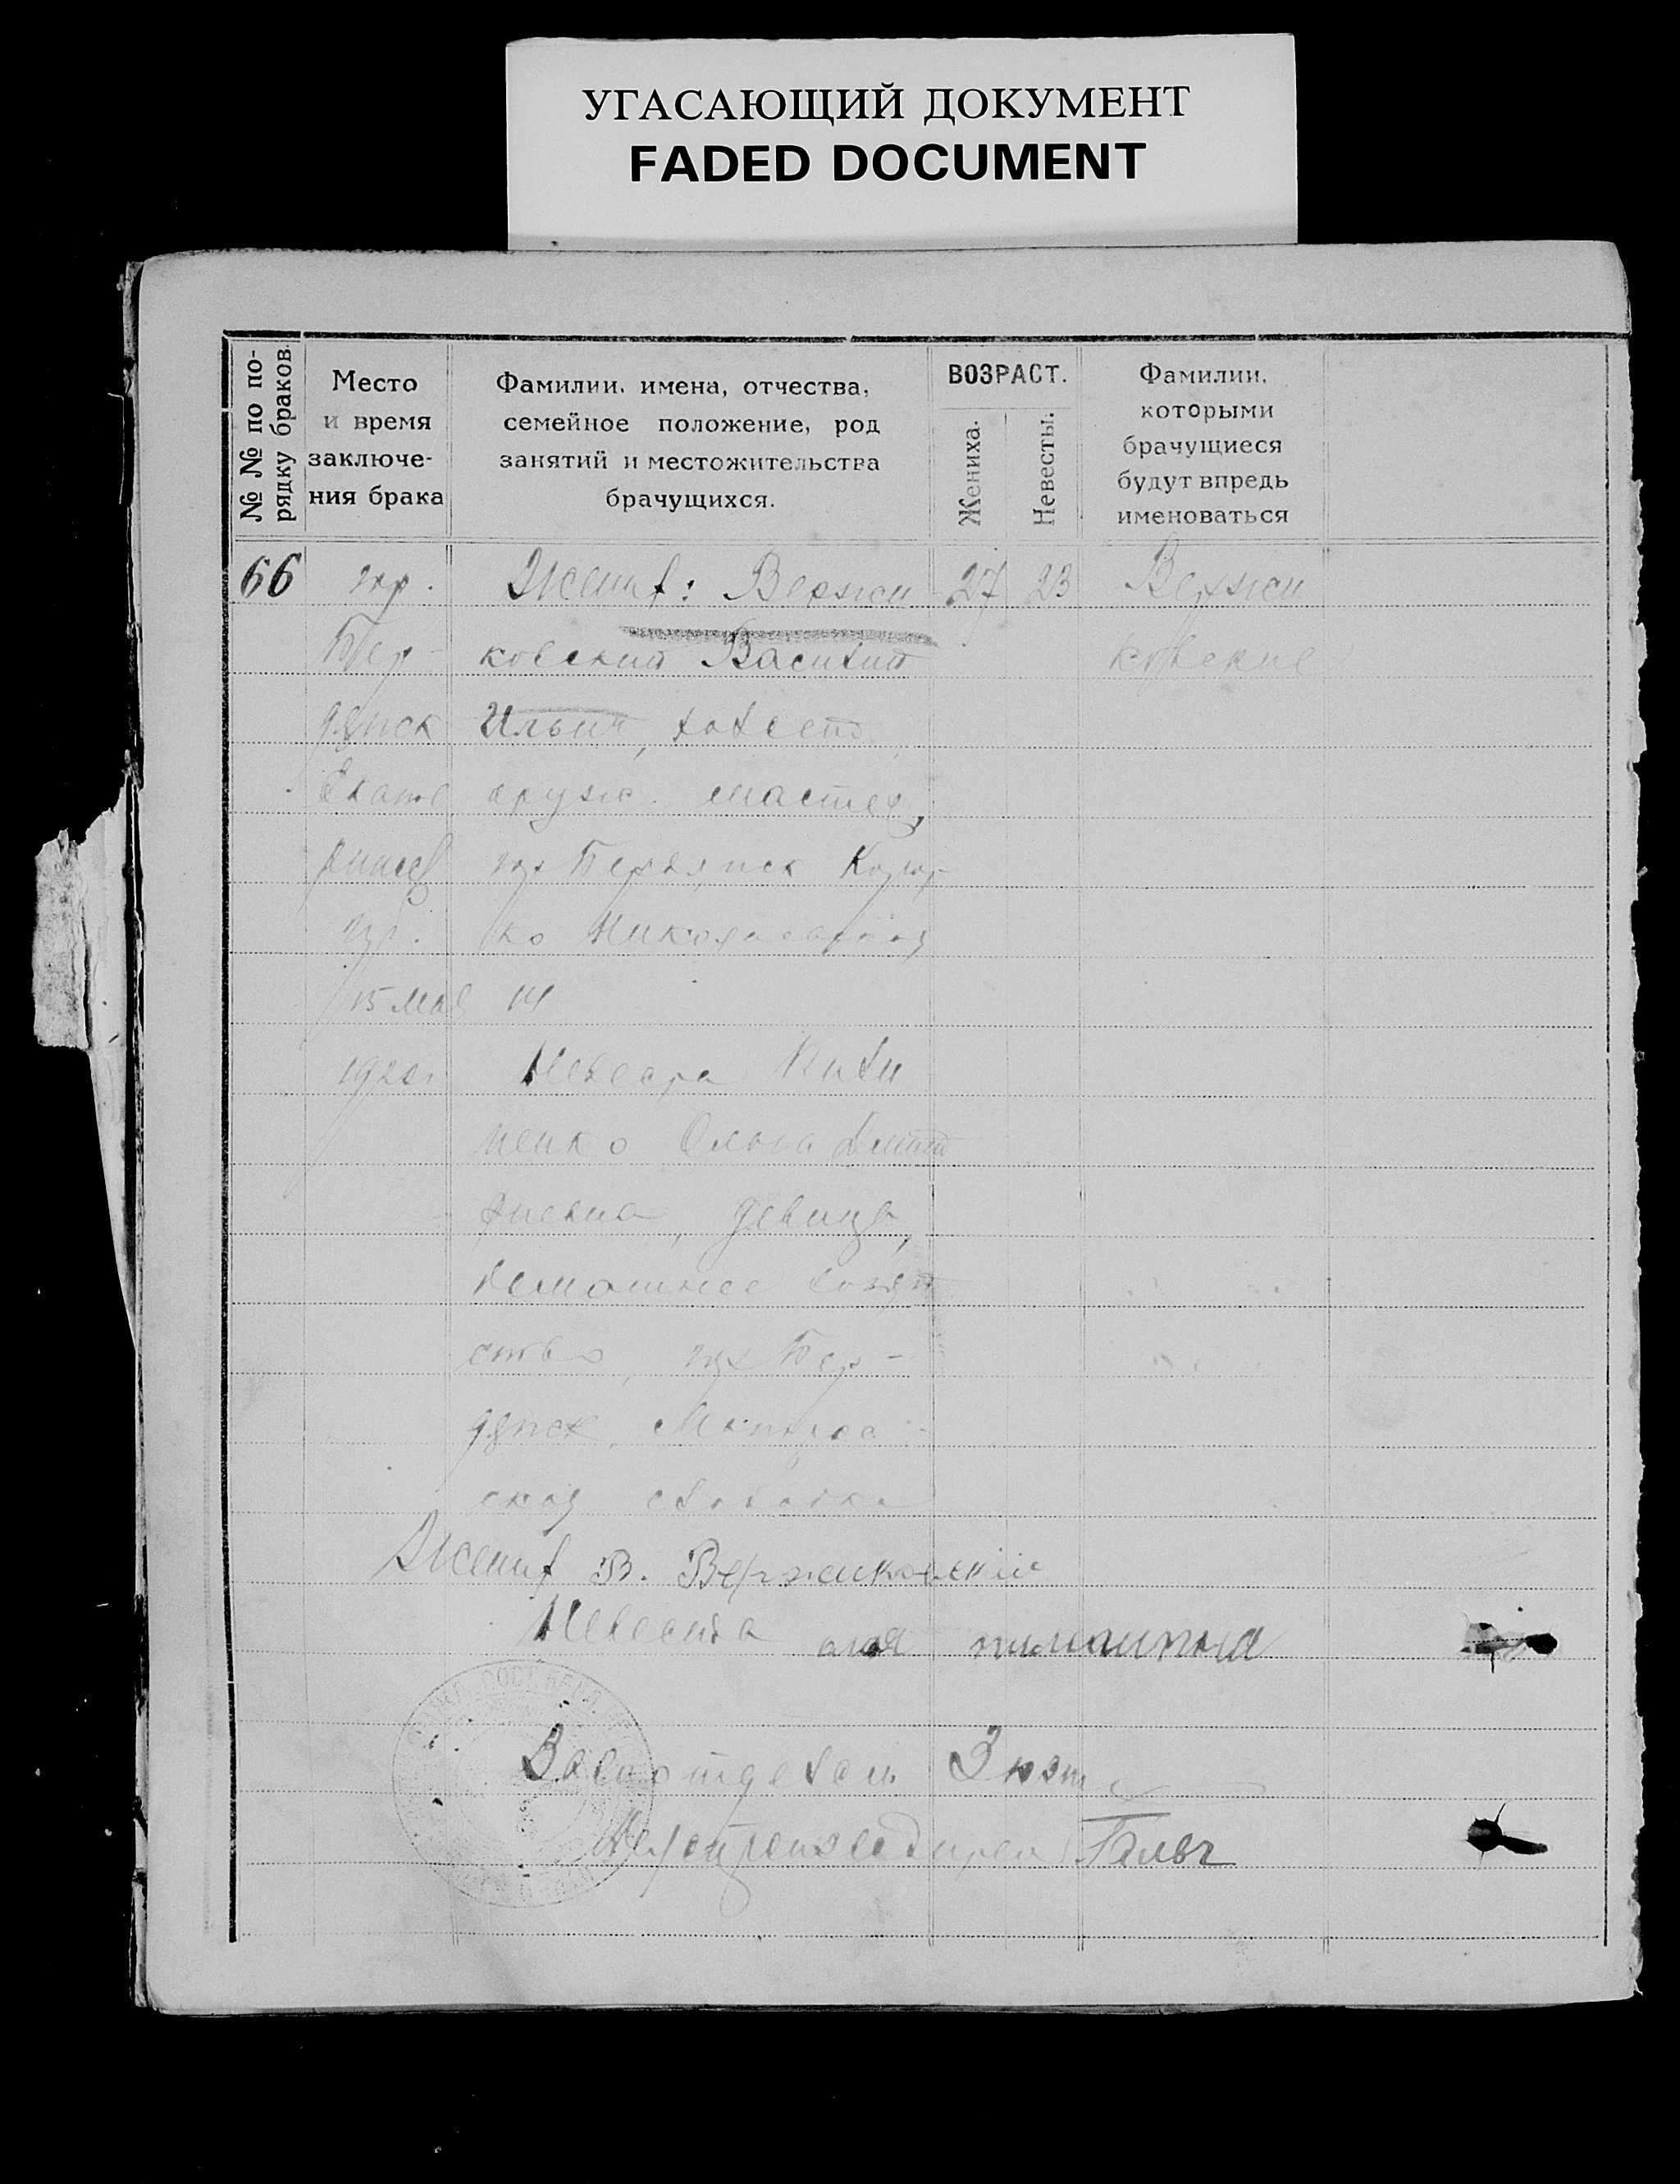 УГАСАЮЩИЙ ДОКУМЕНТ
FADED DOCUMENT
№ № по по-
рядку браков.
Место
и время
заключе-
ния брака
Фамилии, имена, отчества,
семейное положение, род
занятий и местожительства
брачущихся.
ВОЗРАСТ.
Жениха.
Невесты.
Фамилии,
которыми
брачущиеся
будут впредь
именоваться
66
гор.
Бер-
дянск
Екате
ринос
губ.
15 мая
1920 г
Жених: Вержи
ковский Василий
Ильич, холост
оруж. мастер,
гор Бердянск
ко Николаевская
14
Невеста Пили
пенко Ольга Дмит
риевна, девица,
домашнее хозяй
ство, гор Бер-
дянск,
ская слободка
27
23
Вержи
ковские
Жених В. Вержиковский
Невеста
Зав. отделом
Делопроизводитель